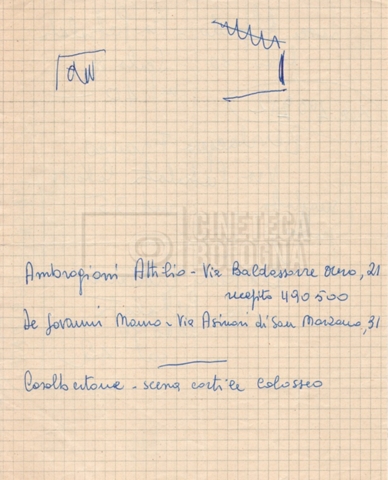 CINETECA
BOLOGNA
Ambrogioni Attilio - Via Baldassarre 21
recapito 490500
De Giovanni - Via Asinari di San Marzano, 31
Casalbertone - scena cortile Colosseo